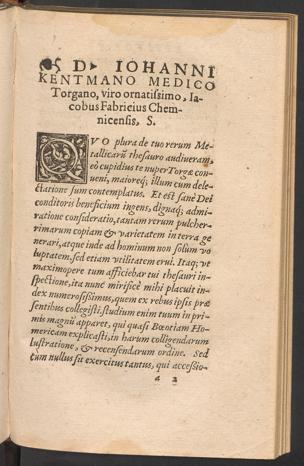 D. IOHANNI
KENTMANO MEDICO
Torgano, viro ornatissimo, Ia-
cobus Fabricius Chem-
nicensis, S.
QVO plura de tuo rerum Me-
tallicarũ thesauro audiueram,
eò cupidius te nuper Torgæ con-
ueni, maioreq́; illum cum dele-
ctatione sum contemplatus. Et est sanè Dei
conditoris beneficium ingens, dignaq́; admi-
ratione consideratio, tantam rerum pulcher-
rimarum copiam & varietatem in terra ge
nerari, atque inde ad hominum non solum vo
luptatem, sed etiam vtilitatem erui. Itaq; vt
maximopere tum afficiebar tui thesauri in-
spectione, ita nunc mirificè mihi placuit in-
dex numerosissimus, quem ex rebus ipsis præ
sentibus collegisti. studium enim tuum in pri-
mis magnũ apparet, qui quasi Bœotiam Ho-
mericam explicasti, in harum colligendarum
lustratione, & recensendarum ordine. Sed
cum nullus sit exercitus tantus, qui accessio-
a 2